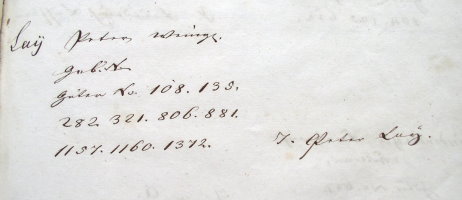 Laÿ Peter Weingt.
Geb. No
Güter No. 108. 135.
282. 321. 806. 881.
1157. 1160. 1372.
T. Peter Laÿ.